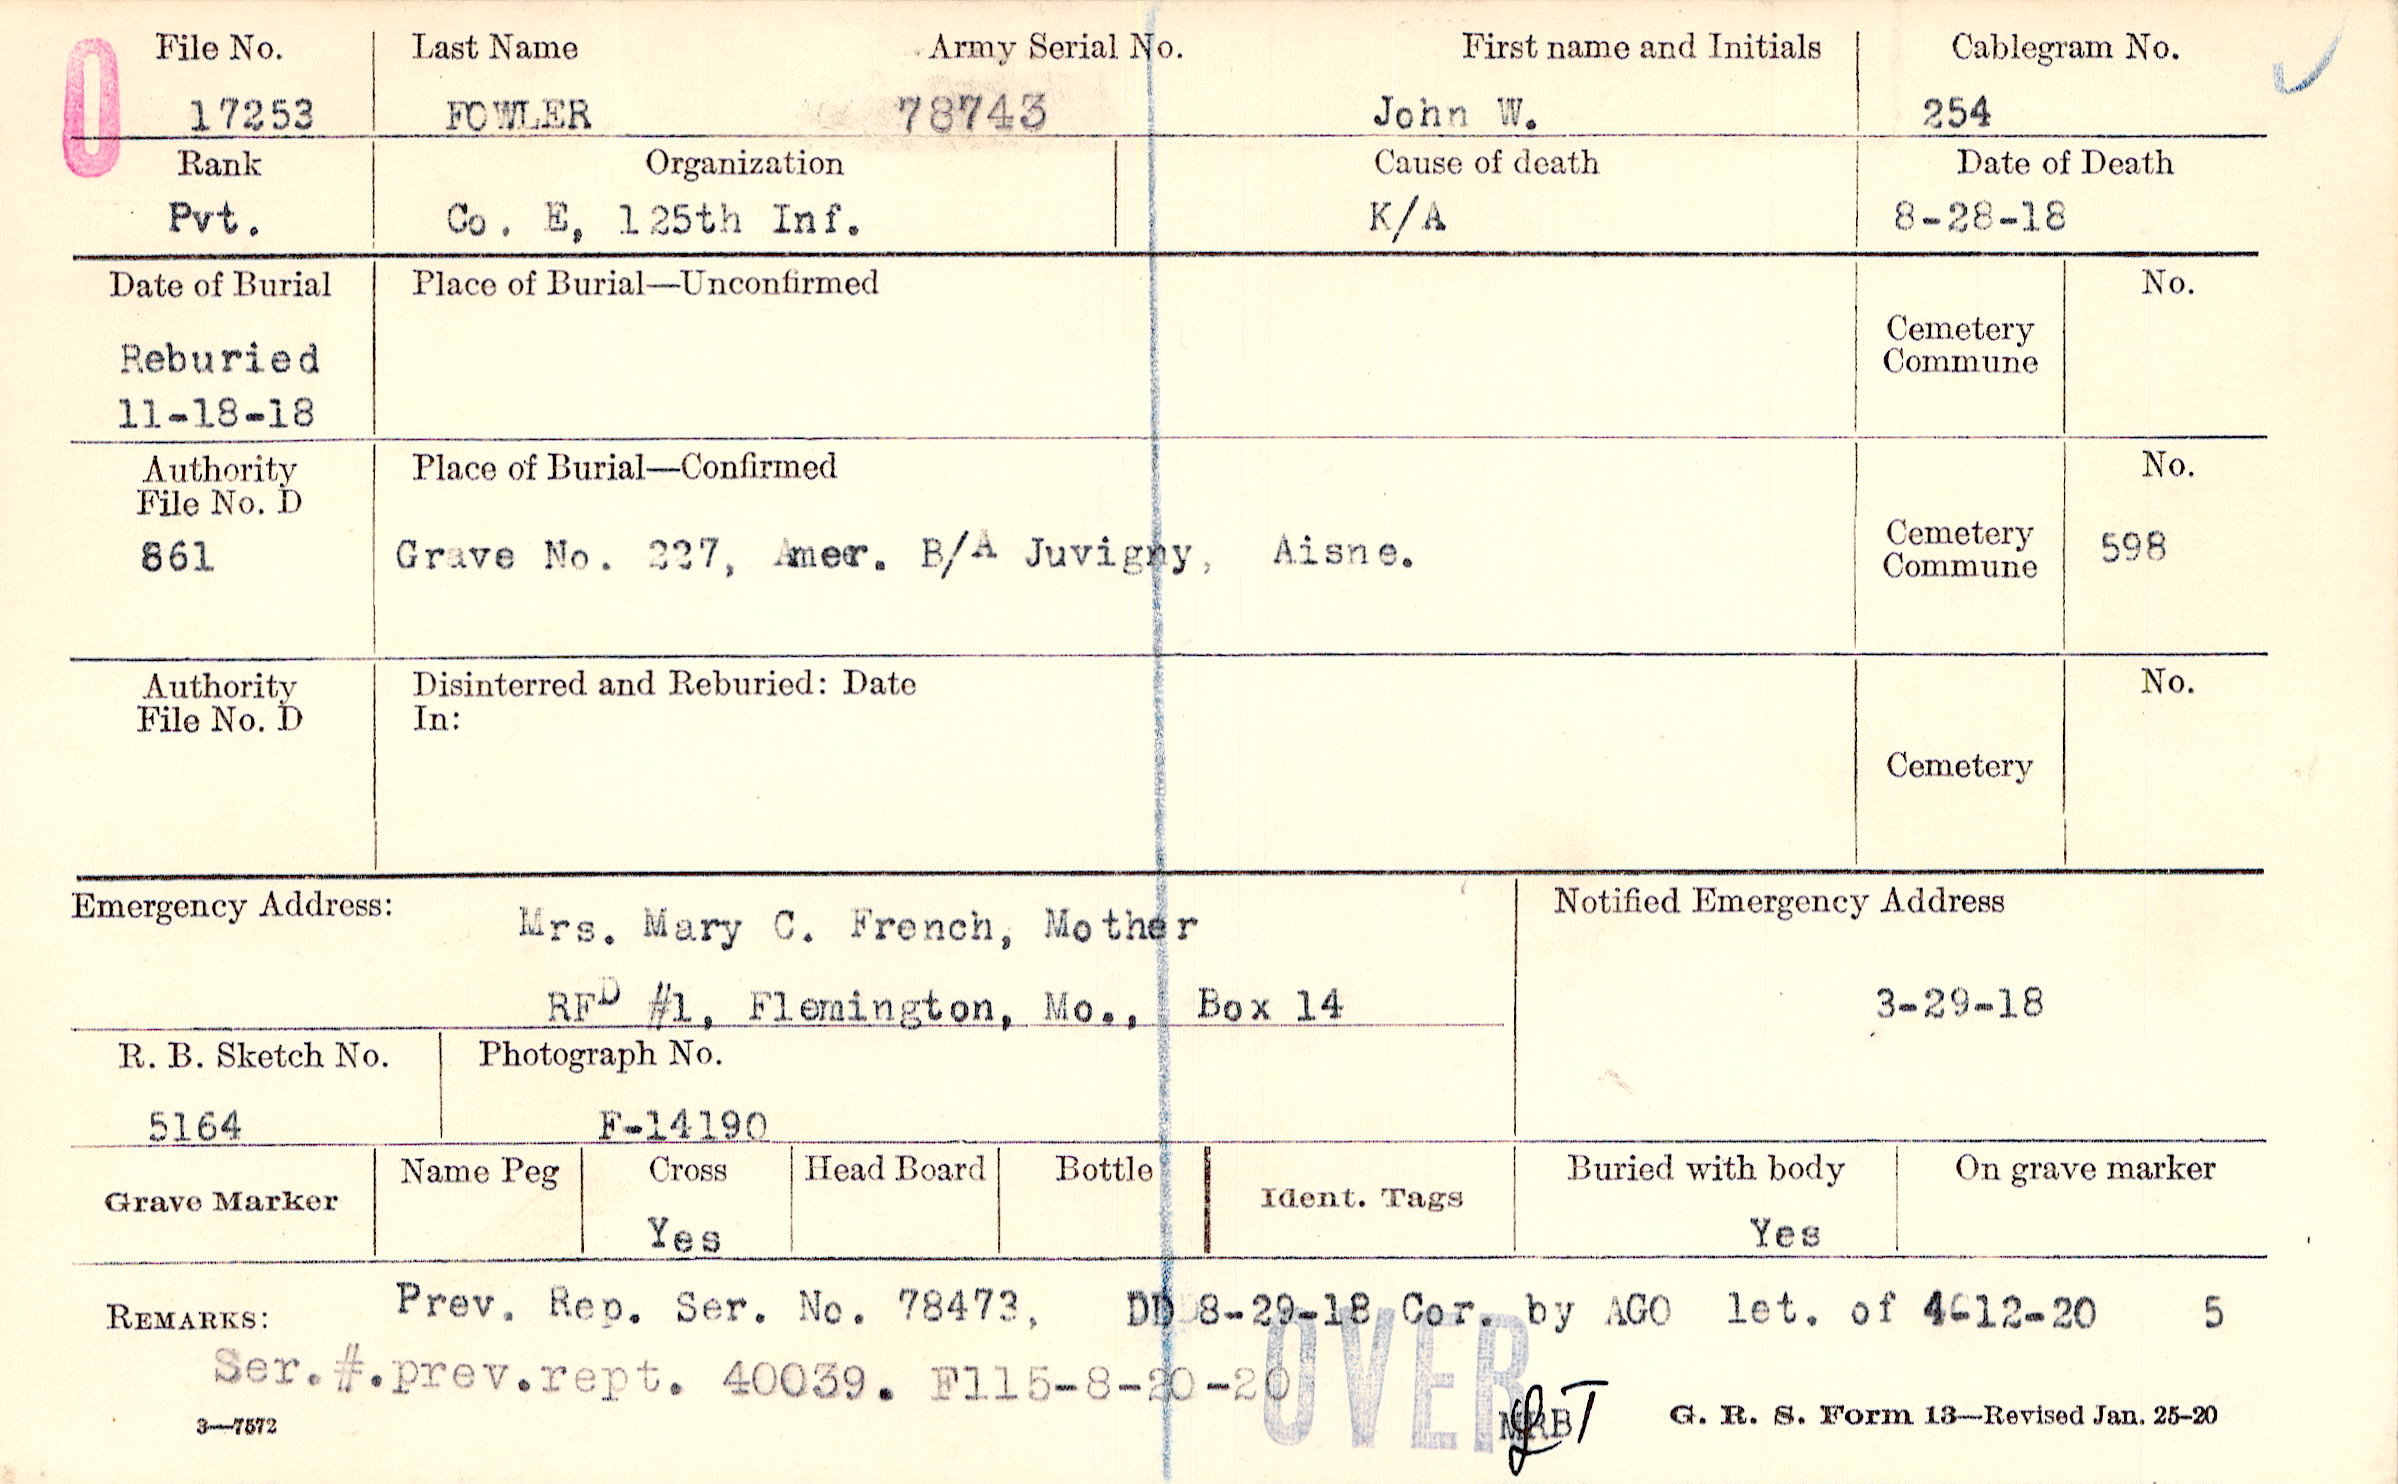 0
File No. Last Name Army Serial No. First name and Initials Cablegram No.
17253 FOWLER 78743 John W. 254
Rank Organization Cause of death Date of Death
Pvt. Co. E, 125th Inf. K/A 8-28-18
Date of Burial Place of Burial—Unconfirmed No.
Cemetery
Commune
Reburied
11-18-18
Authority Place of Burial—Confirmed No.
File No. D
Cemetery
Commune
861 Grave No. 227, Amer. B/A Juvigny, Aisne. 598
Authority Disinterred and Reburied: Date No.
File No. D In:
Cemetery
Emergency Address: Mrs. Mary C. French, Mother Notified Emergency Address
RFD #1, Flemington, Mo., Box 14 3-29-18
R. B. Sketch No. Photograph No.
5164 F-14190
Grave Marker Name Peg Cross Head Board Bottle Ident. Tags Buried with body On grave marker
Yes Yes
REMARKS: Prev. Rep. Ser. No. 78473, DD 8-29-18 Cor. by AGO let. of 4-12-20 5
Ser.#.prev.rept. 40039. F115-8-20-20
OVER
3—7572 G. R. S. Form 13—Revised Jan. 25-20